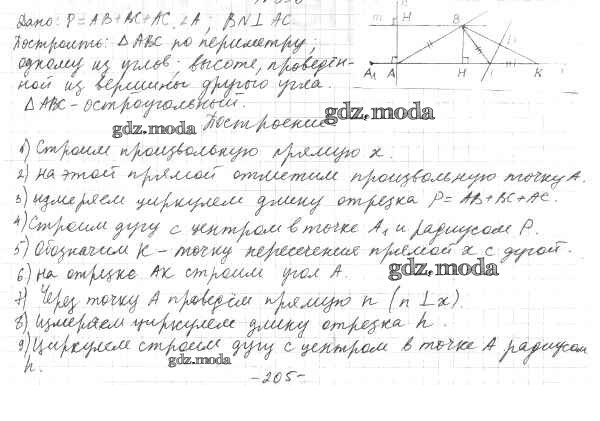 Дано: P=AB+BC+AC. ∠A; BN⊥AC
Построить: △ABC по периметру;
одному из углов; высоте, проведён-
ной из вершины другого угла.
△ABC-остроугольный.
m H B
A₁ A H C K
gdz.moda
gdz.moda
Построение
1) Строим произвольную прямую x.
2) на этой прямой отметим произвольную точку A.
3) измеряем циркулем длину отрезка P=AB+BC+AC.
4) Строим дугу с центром в точке A₁ и радиусом P.
5) Обозначим K - точку пересечения прямой x с дугой.
gdz.moda
6) на отрезке AK строим угол A.
7) Через точку A проведём прямую n (n⊥x).
8) Измеряем циркулем длину отрезка h.
9) Циркулем строим дугу с центром в точке A радиусом
h.
gdz.moda
-205-